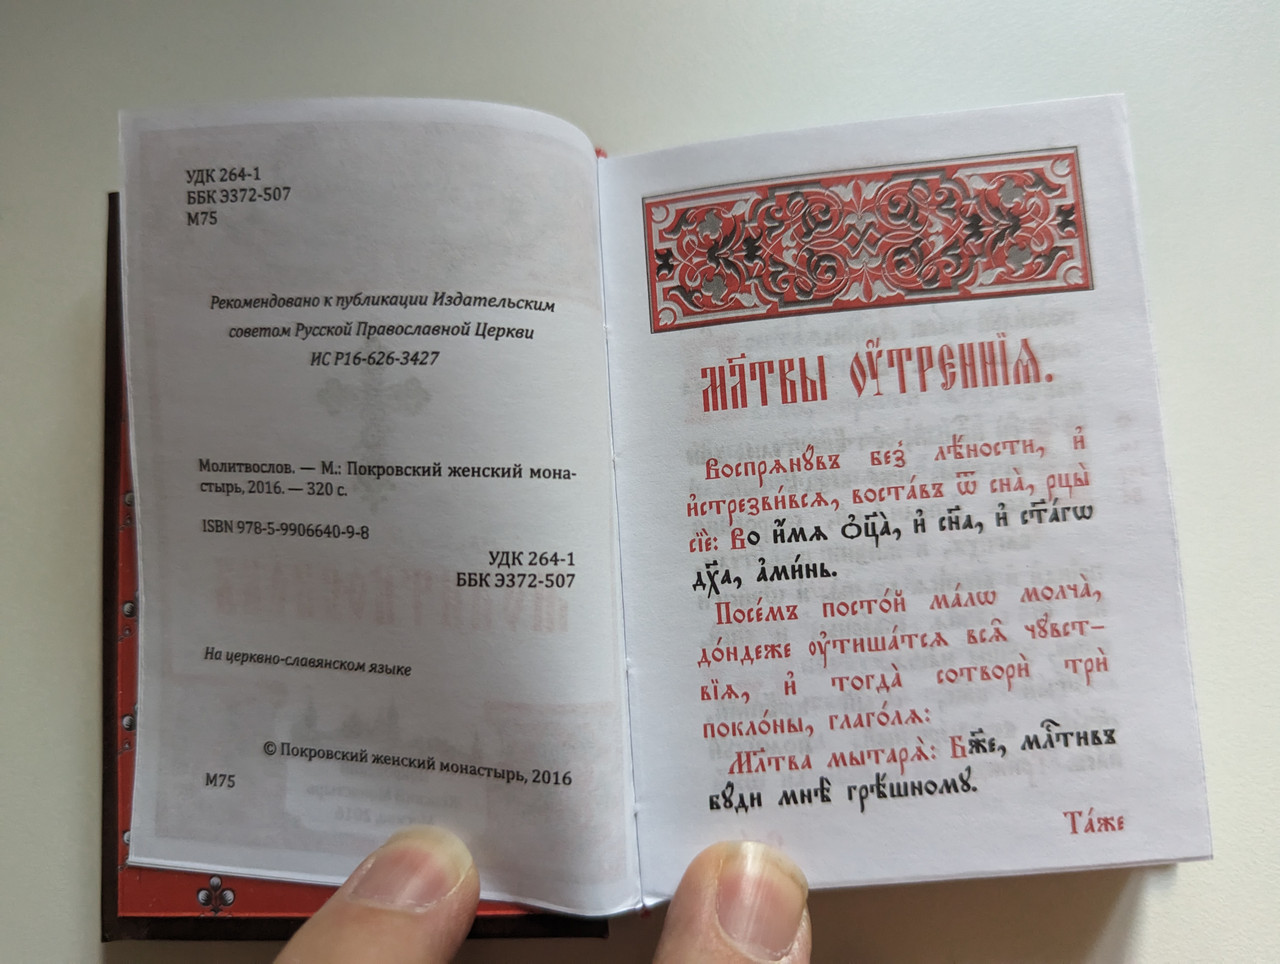 УДК 264-1
ББК Э372-507
М75
Рекомендовано к публикации Издательским
советом Русской Православной Церкви
ИС Р16-626-3427
Молитвослов. — М.: Покровский женский мона-
стырь, 2016. — 320 с.
ISBN 978-5-9906640-9-8
УДК 264-1
ББК Э372-507
На церквно-славянском языке
© Покровский женский монастырь, 2016
М75
Мл҃твы ᲂу҆́треннїѧ.
Воспрѧнꙋ́въ без̾ лѣ́ности, и҆
и҆стрезви́всѧ, воста́въ ѿ сна̀, рцы̀
сїѐ: Во и҆́мѧ ѻ҆ц҃а̀, и҆ сн҃а, и҆ ст҃а́гѡ
дх҃а, а҆ми́нь.
Посе́мъ посто́й ма́лѡ молча̀,
до́ндеже ᲂу҆тиша́тсѧ всѧ̑ чꙋ̑вст-
вїѧ, и҆ тогда̀ сотворѝ трѝ
покло́ны, глаго́лѧ:
Мл҃тва мытарѧ̀: Бж҃е, млⷭ҇тивъ
бꙋ́ди мнѣ̀ грѣ́шномꙋ.
Та́же